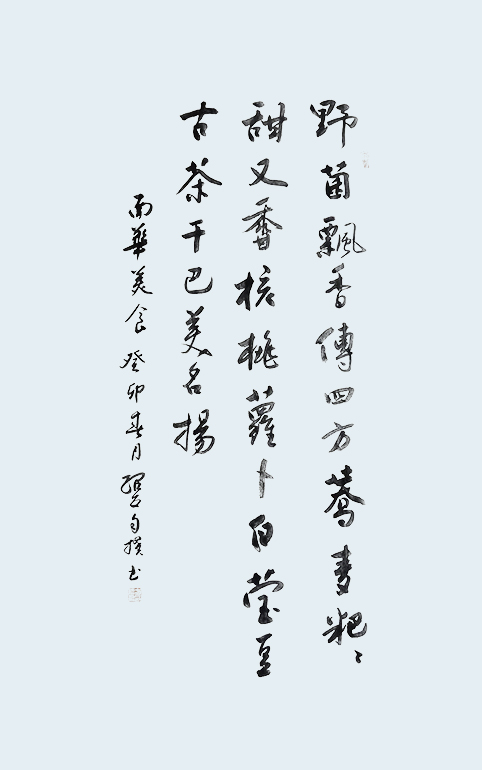 野菌飄香傳四方蕎麦粑〻
甜又香核桃蘿卜白莹豆
古茶干巴美名揚
南華美食癸卯春月自撰书